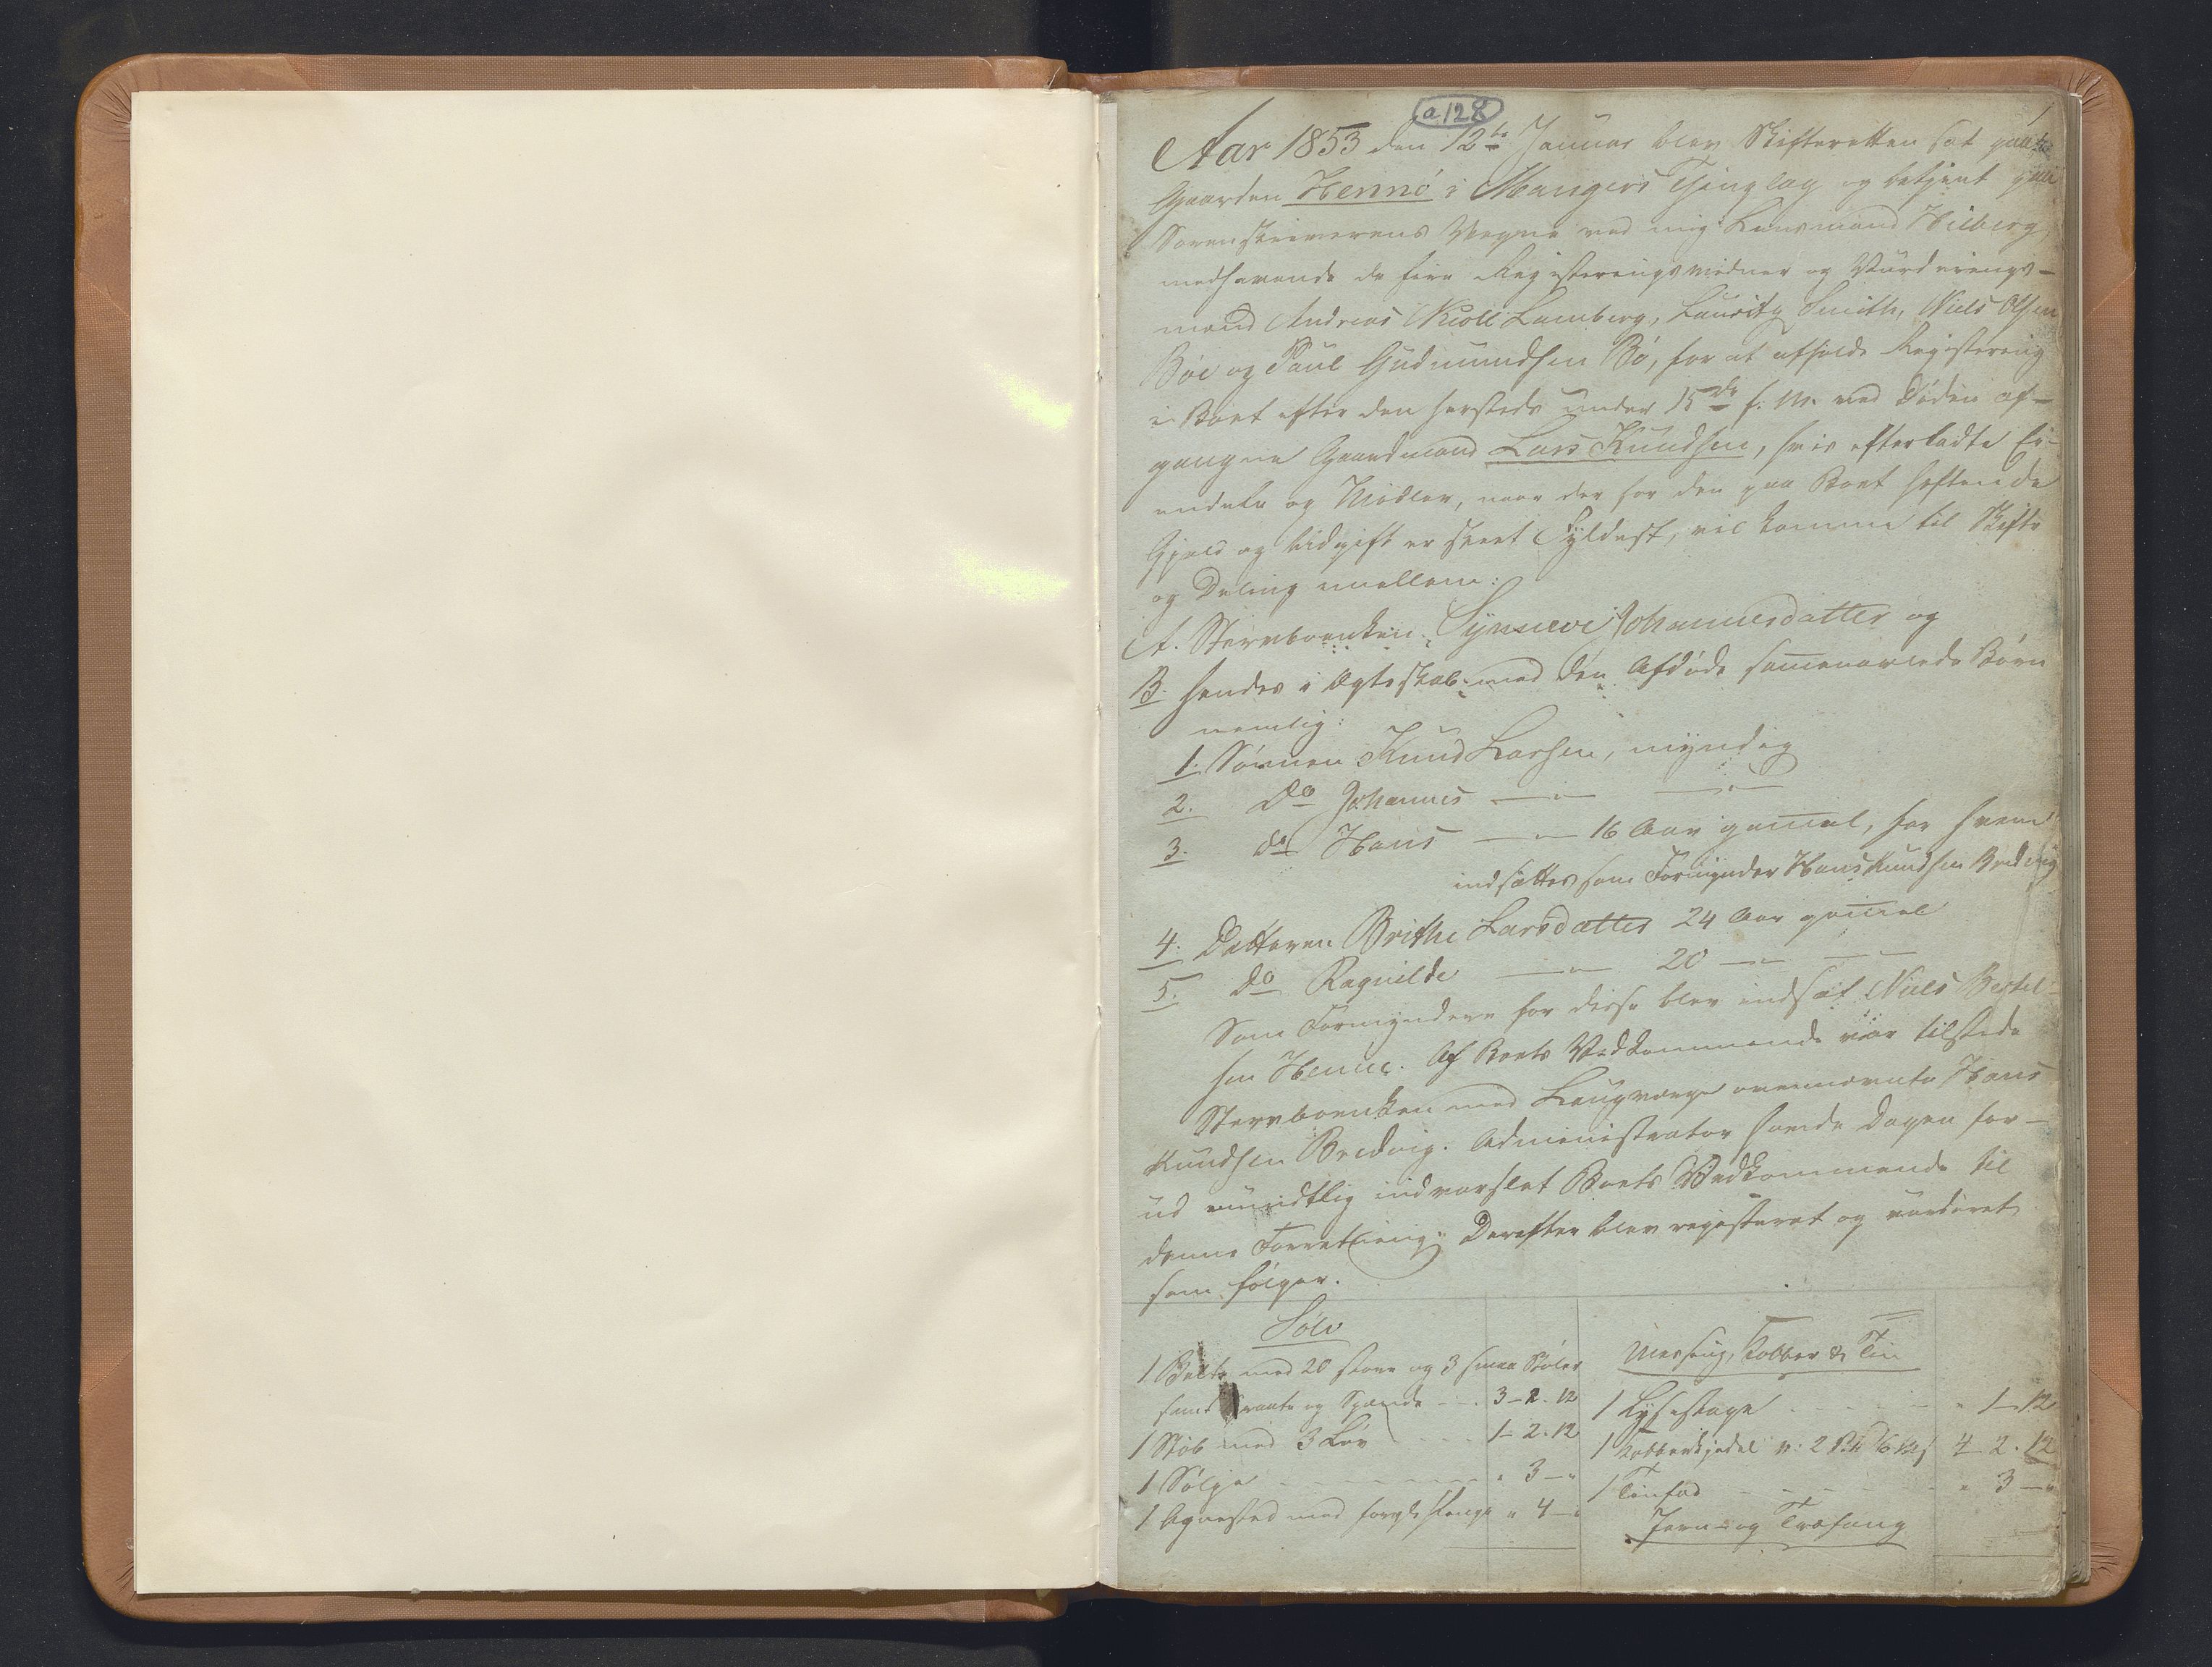 a 128
1
Aar 1853 den 12te Januar blev Skifteretten sat paa
Gaarden Hennö i Mangers Thinglag og betjent paa
Sorenskriverens Vegne ved mig Lensmand Hilberg,
medhavende de faste Registreringsvidner og Vurderings-
mænd Andreas Kroll Lamberg, Lauritz Smith, Niels Olsen
Böe og Paul Gudmundsen Bö, for at afholde Registrering
i Boet efter den hersteds under 15de f. M. ved Döden af-
gangne Gaardmand Lars Knudsen, hvis efterladte Ei-
endele og Midler, naar der for den paa Boet heftende
Gjæld og Udgift er skeet Fyldest, vil komme til Skifte
og Deling mellem:
A. Stervboenken Synneve Johannesdatter og
B. hendes i Ægteskab med den Afdöde sammenavlede Börn
nemlig:
1. Sönnen Knud Larsen, myndig
2. Do Johannes — " — — " —
3. do Hans — " — 16 Aar gammel, for hvem
indsættes som Formynder Hans Knudsen Bredvig
4. Datteren Brithe Larsdatter 24 Aar gammel
5. Do Ragnilde — " — 20 — " — — " —
Som Formyndere for disse blev indsat Niels Bertel-
sen Henne. Af Boets Vedkommende var tilstede
Stervboenken med Laugværge ovennævnte Hans
Knudsen Bredvig. Administrator havde Dagen for-
ud mundtlig indvarslet Boets Vedkommende til
denne Forretning. Derefter blev registreret og vurderet
som fölger.
Sölv
1 Belte med 20 store og 3 smaa Stöler
samt og Spænde 3-2-12
1 Stöb med 3 Löv 1-2-12
1 Sölje " 3-"
1 Agnested med forgyldt " 4-"
Messing, Kobber & Tin
1 Lysestage " 1-12
1 Kobberkjedel v: 2 4-2-12
1 Tinfad " 3-"
Jern- og Træfang